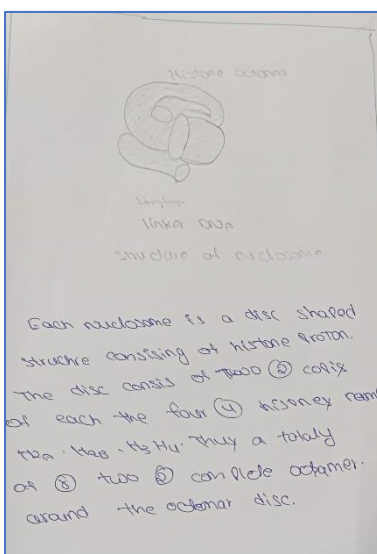 Histone
linkn DNA
structure of nuclosome
Each nuclosome is a disc shaped
struchre consising of histone proton.
The disc consis of two ② copix
of each the four ④ hisonex
H2A . H2B . H3 H4. Thuy a totaly
of ⑧ two ② complete octamer.
around the octomar disc.